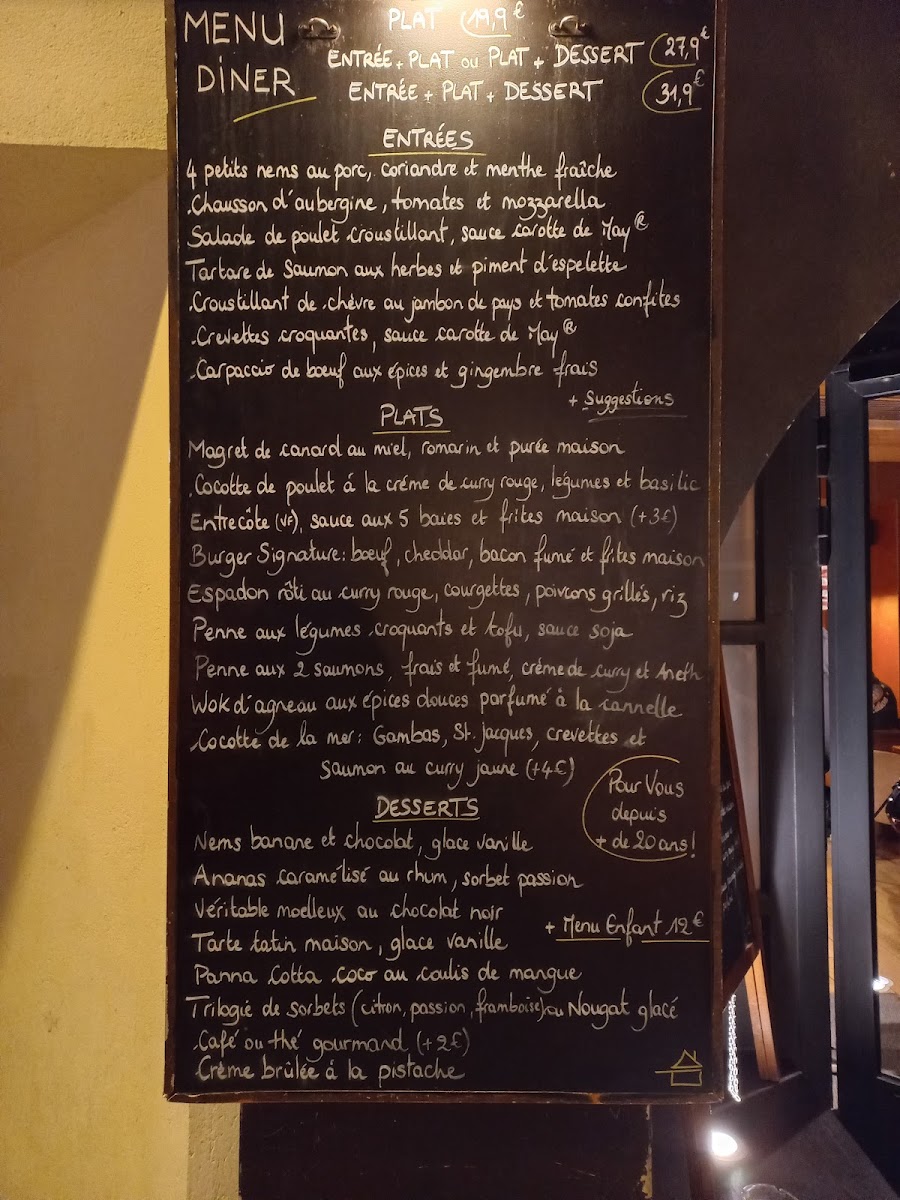 MENU DINER
PLAT 19,9€
ENTRÉE + PLAT OU PLAT + DESSERT 27,9€
ENTRÉE + PLAT + DESSERT 31,9€
ENTRÉES
4 petits nems au porc, coriandre et menthe fraîche
Chausson d'aubergine, tomates et mozzarella
Salade de poulet croustillant, sauce carotte de May®
Tartare de Saumon aux herbes et piment d'espelette
Croustillant de chèvre au jambon de pays et tomates confites
Crevettes croquantes, sauce carotte de May®
Carpaccio de boeuf aux épices et gingembre frais
+ Suggestions
PLATS
Magret de canard au miel, romarin et purée maison
Cocotte de poulet à la crème de curry rouge, légumes et basilic
Entrecôte (VF), sauce aux 5 baies et frites maison (+3€)
Burger Signature: boeuf, cheddar, bacon fumé et frites maison
Espadon rôti au curry rouge, courgettes, poivrons grillés, riz
Penne aux légumes croquants et tofu, sauce soja
Penne aux 2 saumons, frais et fumé, crème de curry et Aneth
Wok d'agneau aux épices douces parfumé à la cannelle
Cocotte de la mer: Gambas, St. jacques, crevettes et
Saumon au curry jaune (+4€)
Pour Vous
depuis
+ de 20 ans!
DESSERTS
Nems banane et chocolat, glace vanille
Ananas caramélisé au rhum, sorbet passion
Véritable moelleux au chocolat noir
+ Menu Enfant 12€
Tarte tatin maison, glace vanille
Panna Cotta coco au coulis de mangue
Trilogie de sorbets (citron, passion, framboise) ou Nougat glacé
Café ou thé gourmand (+2€)
Crème brûlée à la pistache